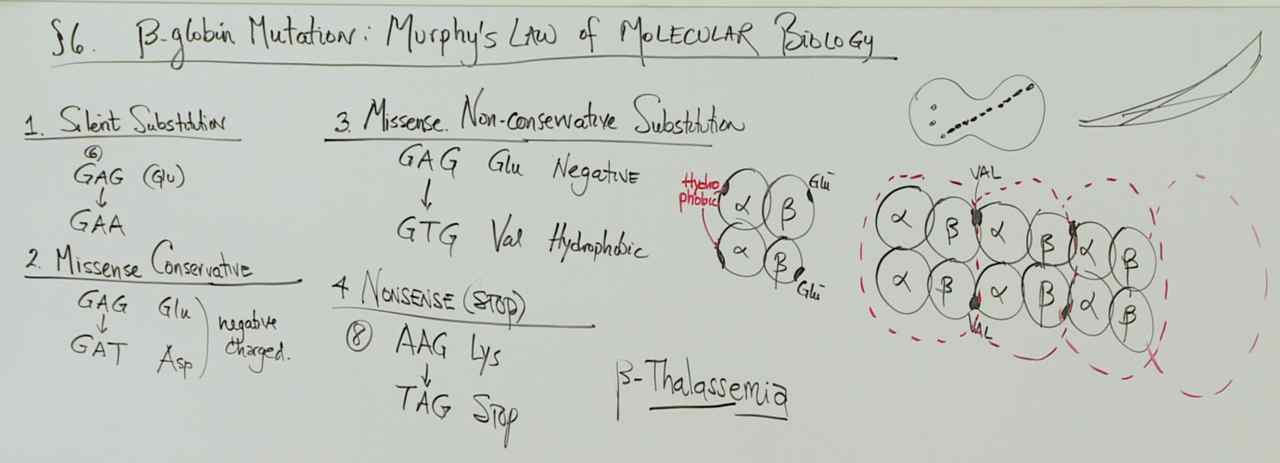 §6. β-globin Mutation: Murphy's Law of Molecular Biology
1. Silent Substitution
⑥
GAG (Glu)
↓
GAA
2. Missense Conservative
GAG Glu
↓
GAT Asp
negative
charged.
3. Missense. Non-conservative Substitution
GAG Glu Negative
↓
GTG Val Hydrophobic
4 NONSENSE (STOP)
⑧ AAG Lys
↓
TAG Stop
β-Thalassemia
Hydro
phobic
α β
Glu⁻
α β
Glu⁻
VAL
α β α β α β
α β α β α β
VAL